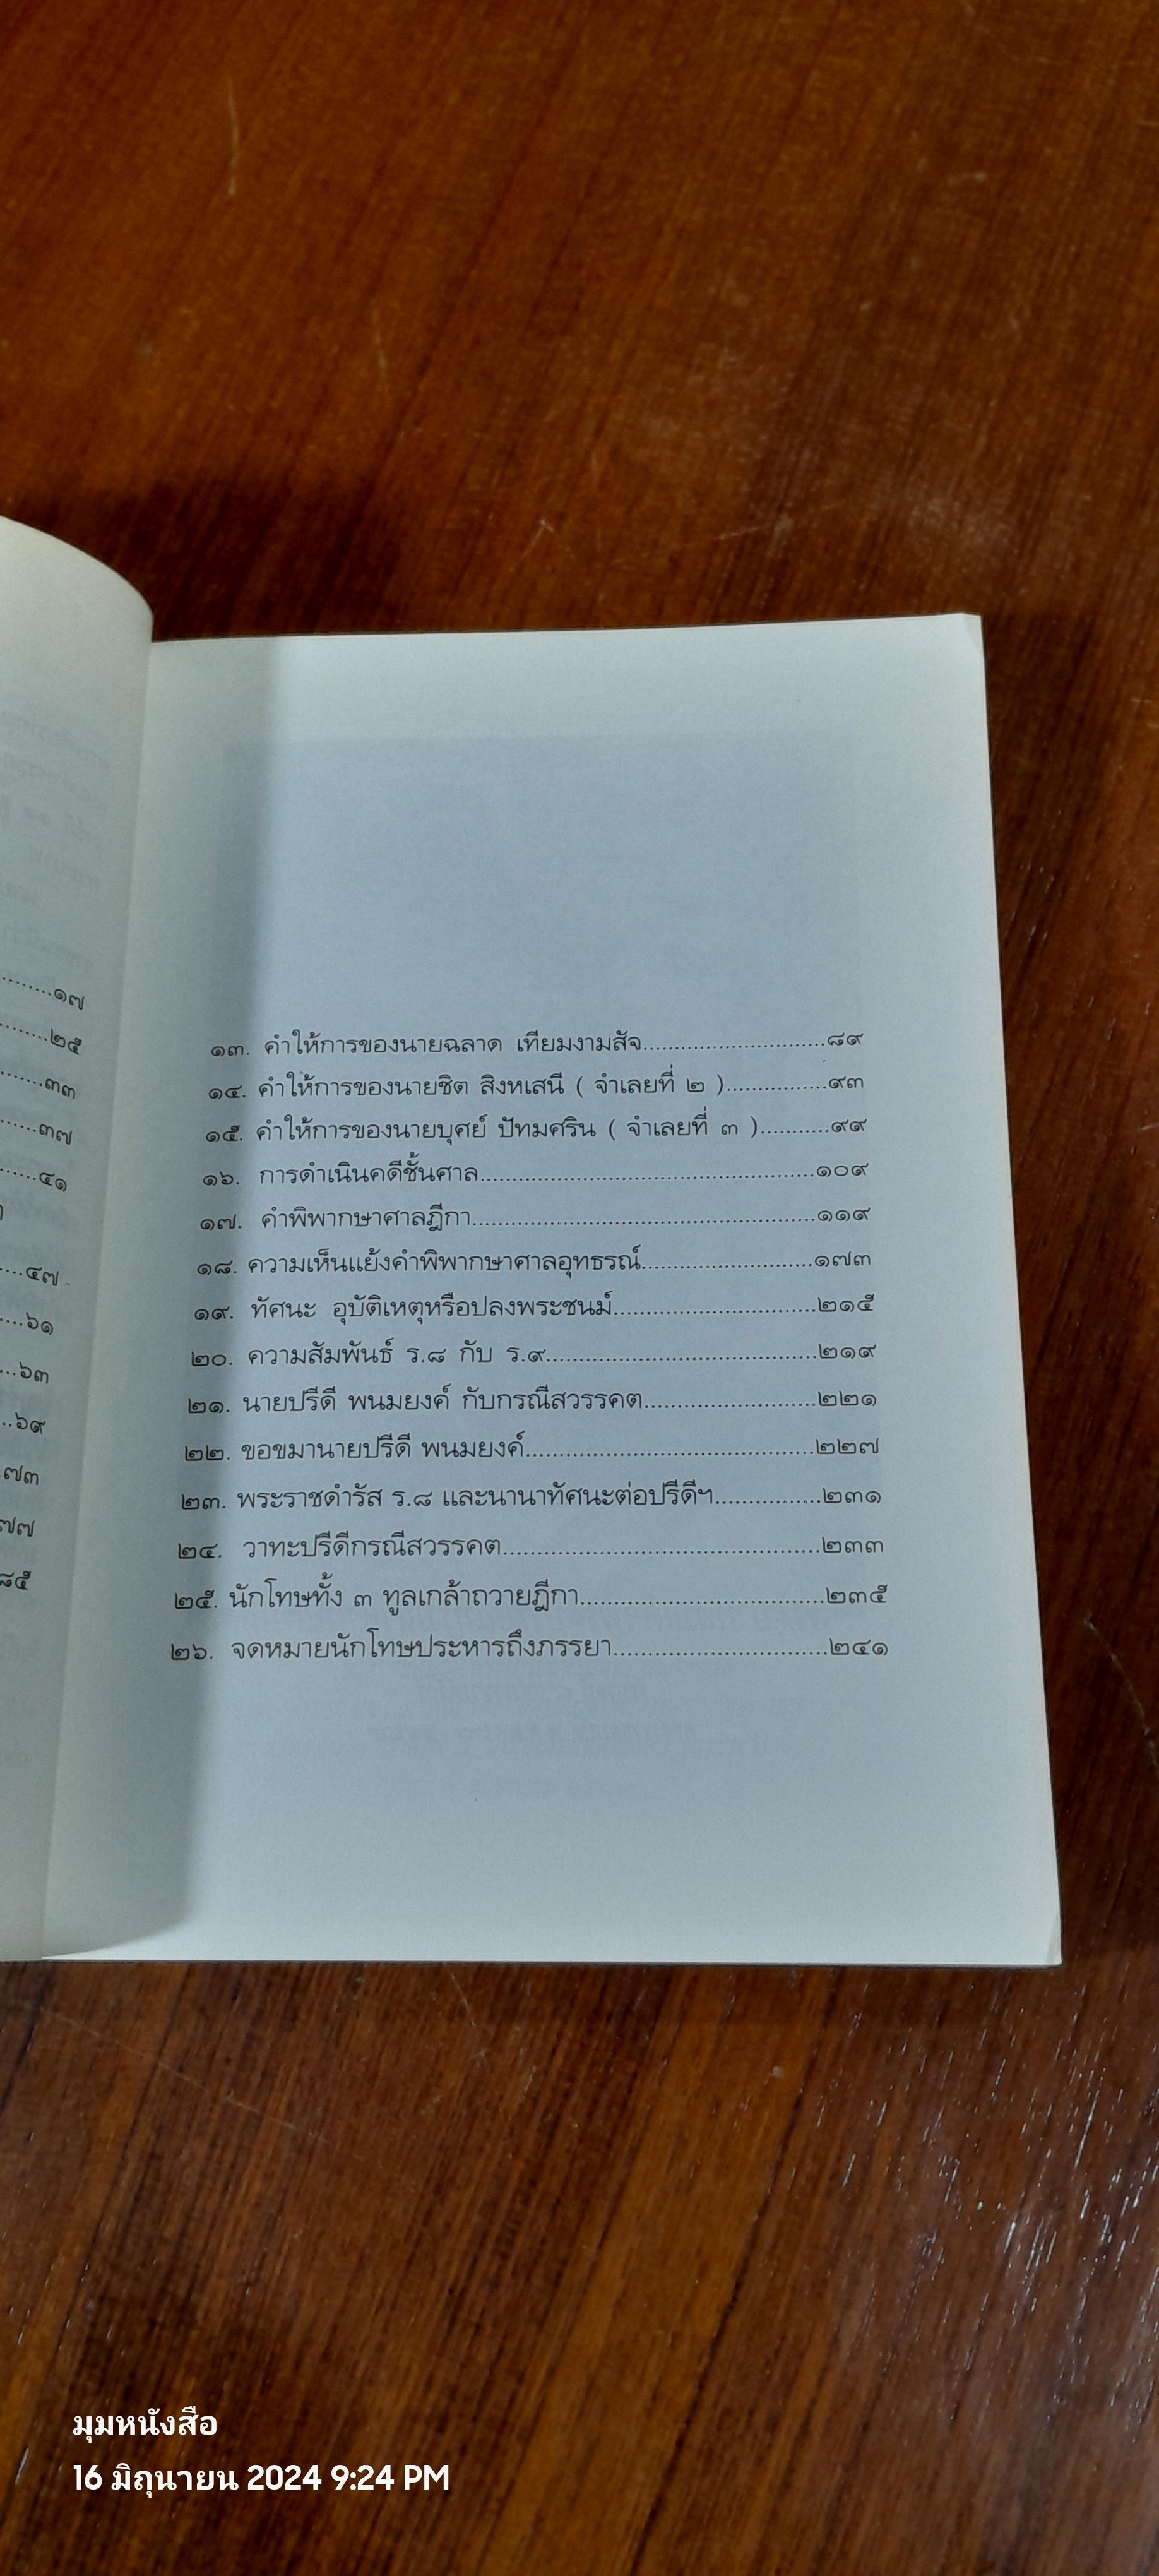 ๑๗
๒๕
๓๓
๓๗
๔๑
๔๗
๖๑
๖๓
๖๙
๗๓
๗๗
๘๕
๑๓. คำให้การของนายฉลาด เทียมงามสัจ..............................๘๙
๑๔. คำให้การของนายชิต สิงหเสนี ( จำเลยที่ ๒ )................๙๓
๑๕. คำให้การของนายบุศย์ ปัทมศริน ( จำเลยที่ ๓ )...........๙๙
๑๖. การดำเนินคดีชั้นศาล......................................................๑๐๙
๑๗. คำพิพากษาศาลฎีกา.......................................................๑๑๙
๑๘. ความเห็นแย้งคำพิพากษาศาลอุทธรณ์............................๑๗๓
๑๙. ทัศนะ อุบัติเหตุหรือปลงพระชนม์.................................๒๑๕
๒๐. ความสัมพันธ์ ร.๘ กับ ร.๙...........................................๒๑๙
๒๑. นายปรีดี พนมยงค์ กับกรณีสวรรคต............................๒๒๑
๒๒. ขอขมานายปรีดี พนมยงค์..............................................๒๒๗
๒๓. พระราชดำรัส ร.๘ และนานาทัศนะต่อปรีดีฯ.................๒๓๑
๒๔. วาทะปรีดีกรณีสวรรคต..................................................๒๓๓
๒๕. นักโทษทั้ง ๓ ทูลเกล้าถวายฎีกา.......................................๒๓๕
๒๖. จดหมายนักโทษประหารถึงภรรยา..................................๒๔๑
มุมหนังสือ
16 มิถุนายน 2024 9:24 PM